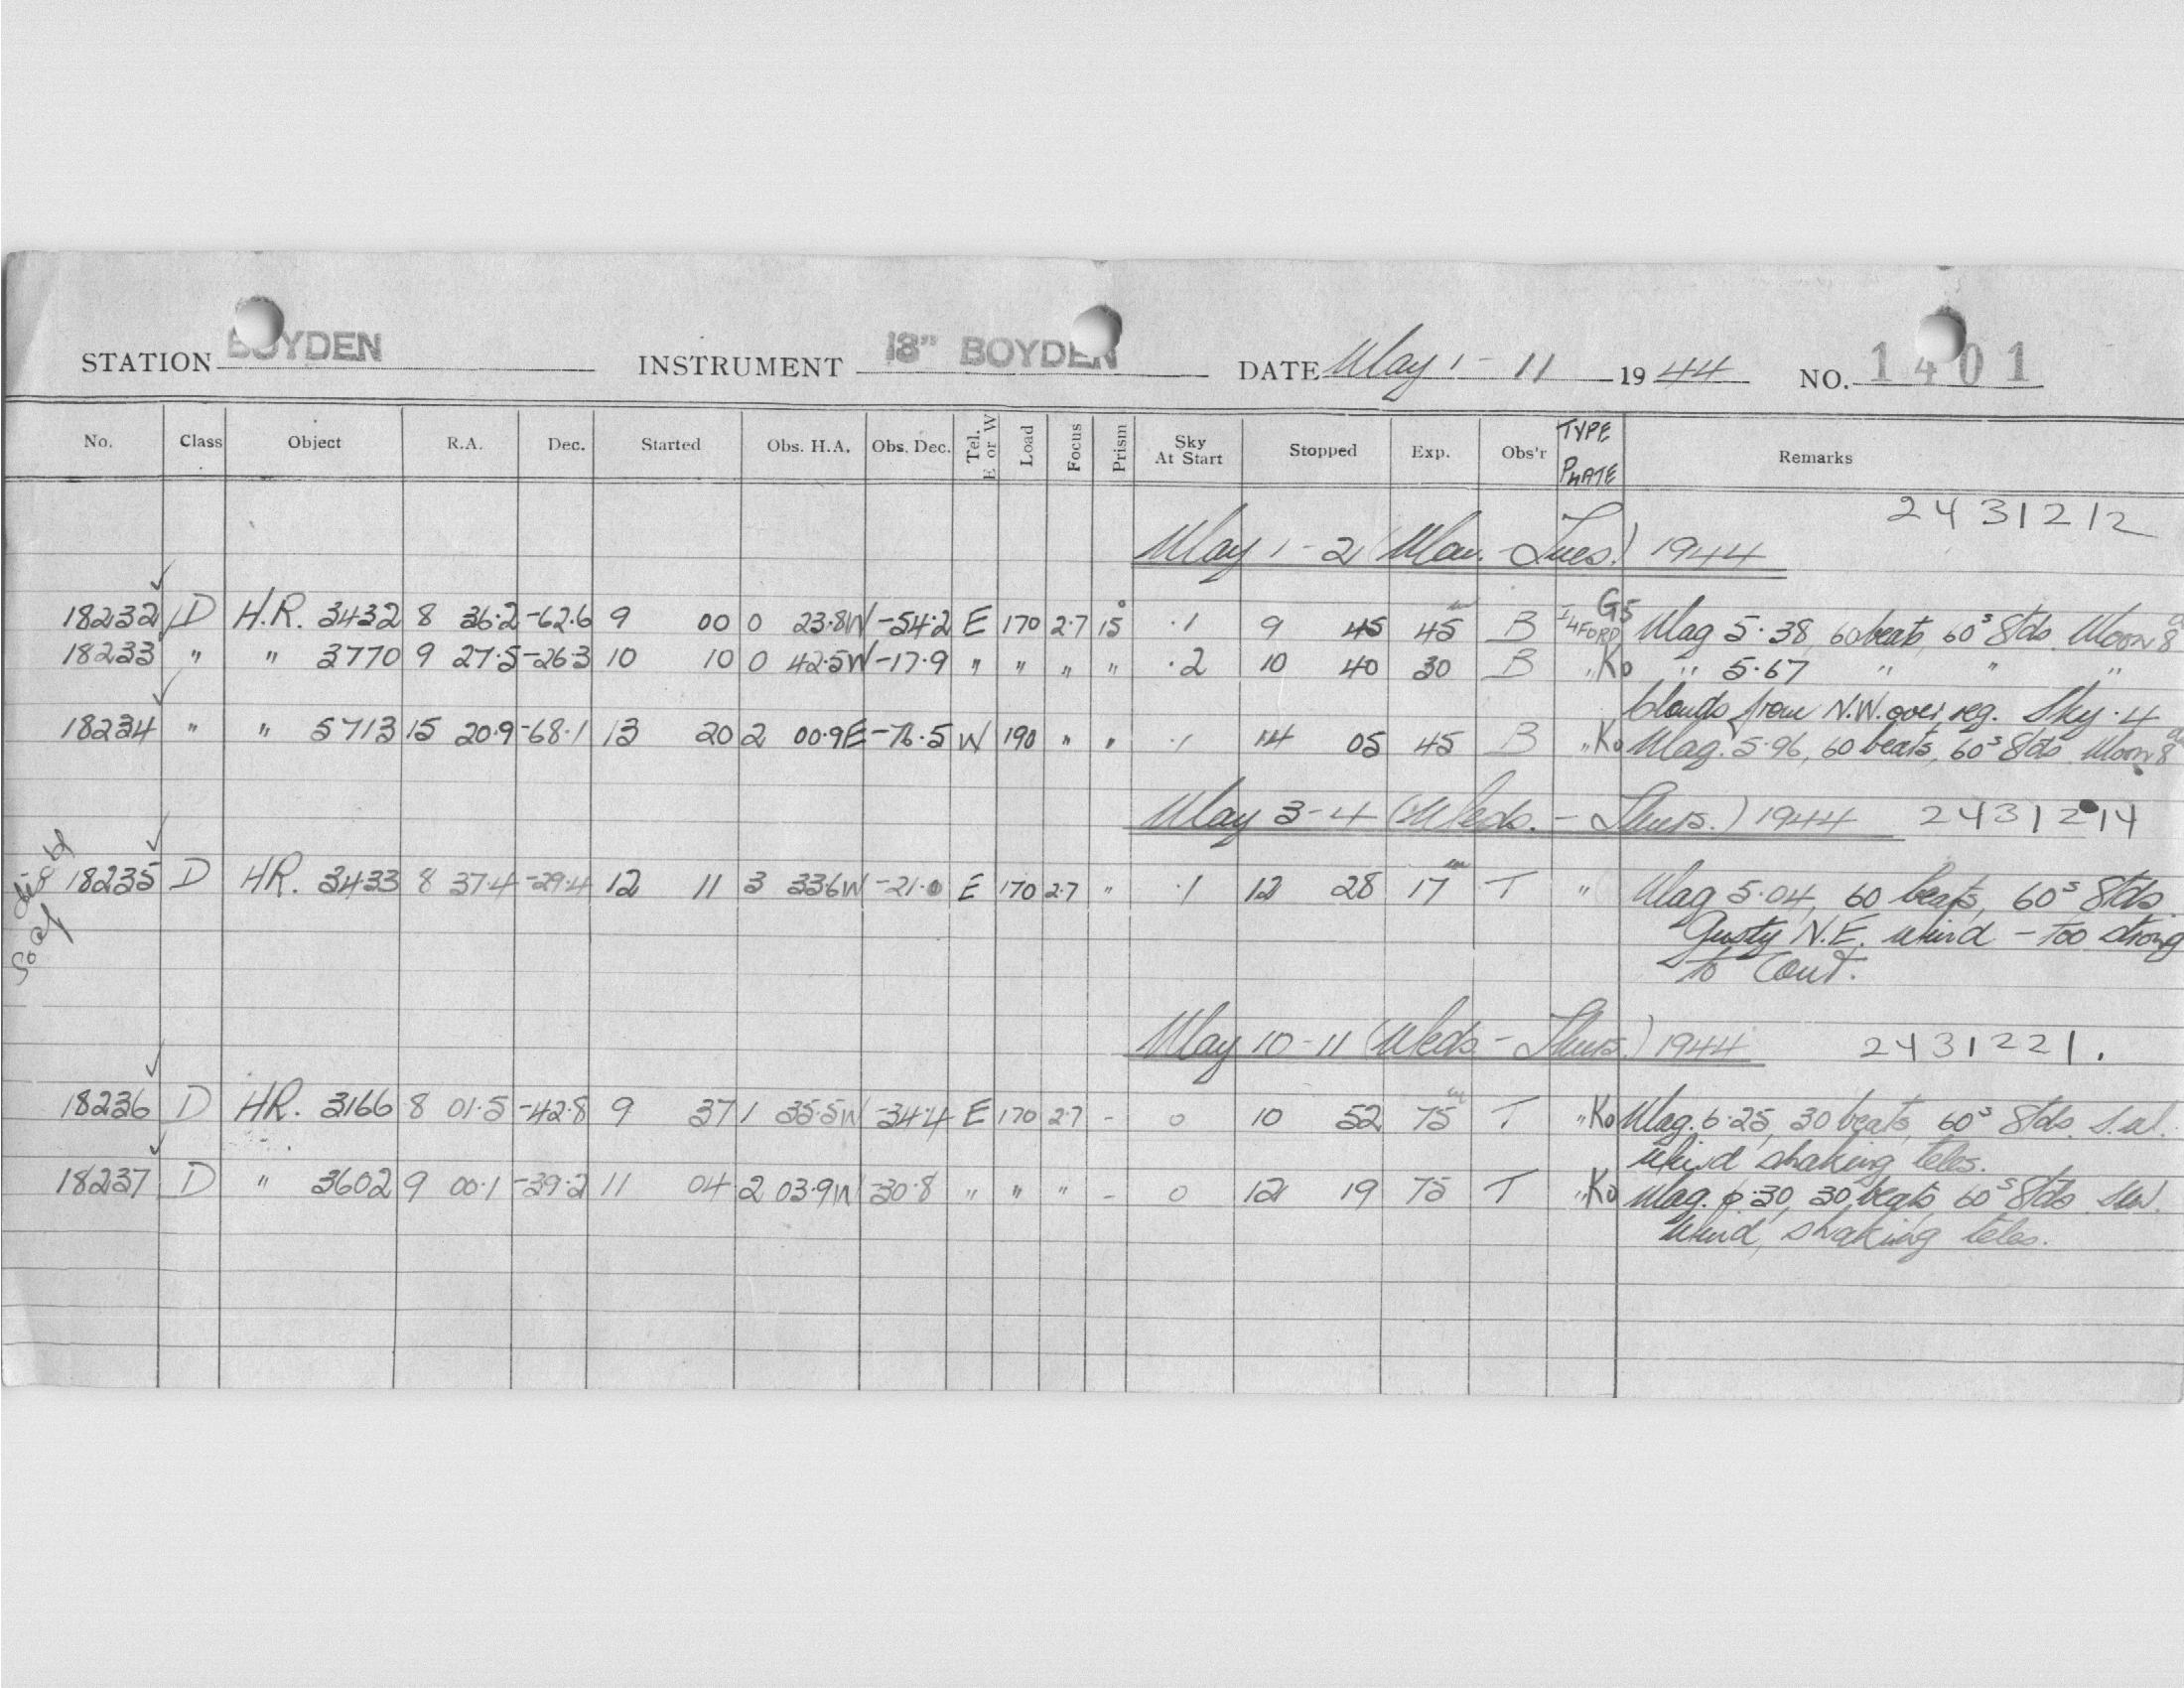 STATION BOYDEN INSTRUMENT 18" BOYDEN DATE May 1-11 1944 NO. 1401
No. Class Object R.A. Dec. Started Obs. H.A. Obs. Dec. Tel. E or W Load Focus Prism Sky At Start Stopped Exp. Obs'r TYPE PLATE Remarks
2431212
May 1-2 (Mon. - Tues.) 1944
18232 D H.R. 3432 8 36.2 -62.6 9 00 0 23.8W -54.2 E 170 2.7 15° .1 9 45 45 m B I4FORD G5 Mag 5.38, 60 beats, 60s Stds. Moon 8
18233 " " 3770 9 27.5 -26.3 10 10 0 42.5W -17.9 " " " " .2 10 40 30 B " Ko " 5.67 " " "
Clouds from N.W. over reg. Sky .4
18234 " " 5713 15 20.9 -68.1 13 20 2 00.9E -76.5 W 190 " " .1 14 05 45 B " Ko Mag. 5.96, 60 beats, 60s Stds. Moon 8
May 3-4 (Weds. - Thurs.) 1944 2431214
18235 D HR. 3433 8 37.4 -29.4 12 11 3 33.6W -21.0 E 170 2.7 " .1 12 28 17 m T " Mag 5.04, 60 beats, 60s Stds.
Gusty N.E. wind - too strong
to Cont.
May 10-11 (Weds - Thurs.) 1944 2431221.
18236 D HR. 3166 8 01.5 -42.8 9 37 1 35.5W -34.4 E 170 2.7 - 0 10 52 75 m T " Ko Mag. 6.25, 30 beats, 60s Stds. S.W.
wind shaking teles.
18237 D " 3602 9 00.1 -39.2 11 04 2 03.9W -30.8 " " " - 0 12 19 75 T " Ko Mag. 6.30, 30 beats 60s Stds. SW.
Wind, shaking teles.